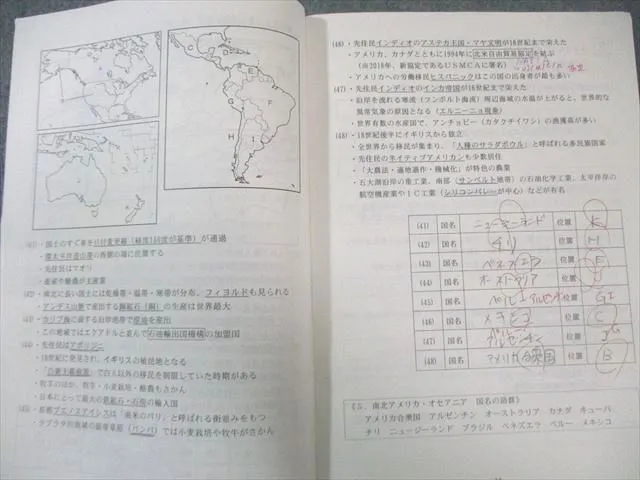 ・国土のすぐ東を日付変更線(経度180度が基準)が通過
・環太平洋造山帯の西側の端に位置する
・先住民はマオリ
・畜産や酪農が主産業
(42)・南北に長い国土には乾燥帯・温帯・寒帯が分布、フィヨルドも見られる
・アンデス山脈で産出する銅鉱石(銅)の生産は世界最大
(43)・カリブ海に面する沿岸地帯で原油を産出
・この地域ではエクアドルと並んで石油輸出国機構の加盟国
(44)・先住民はアボリジニー
・18世紀に発見され、イギリスの植民地となる
・「白豪主義政策」で白人以外の移民を制限していた時期がある
・牧羊のほか、酪牛・小麦栽培・酪農もさかん
・日本にとって最大の鉄鉱石・石炭の輸入国
(45)・首都ブエノスアイレスは「南米のパリ」と呼ばれる街並みをもつ
・ラプラタ川流域の温帯草原(パンパ)では小麦栽培や牧牛がさかん
C
E
G
F
H
(46)・先住民インディオのアステカ王国・マヤ文明が16世紀まで栄えた
・アメリカ、カナダとともに1994年に北米自由貿易協定を結ぶ
(南2018年、新協定であるUSMCAに署名)
・アメリカへの労働移民ヒスパニックはこの国の出身者が最も多い
(47)・先住民インディオのインカ帝国が16世紀まで栄えた
・沿岸を流れる寒流(フンボルト海流)周辺海域の水温が上がると、世界的な
異常気象の原因となる(エルニーニョ現象)
・世界有数の水産国で、アンチョビー(カタクチイワシ)の漁獲高が多い
(48)・18世紀後半にイギリスから独立
・全世界から移民が集まり、「人種のサラダボウル」と呼ばれる多民族国家
・先住民のネイティブアメリカンも少数居住
・「大農法・適地適作・機械化」が特色の農業
・五大湖沿岸の重工業、南部(サンベルト地帯)の石油化学工業、太平洋岸の
航空機産業やIC工業(シリコンバレーが中心)などが有名
(41) 国名 ニュージーランド 位置 K
(42) 国名 チリ 位置 H
(43) 国名 ベネズエラ 位置 E
(44) 国名 オーストラリア 位置
(45) 国名 ペルー アルゼンチン 位置 G I
(46) 国名 メキシコ 位置 C
(47) 国名 アルゼンチン 位置 G
(48) 国名 アメリカ合衆国 位置 B
《5.南北アメリカ・オセアニア 国名の語群》
アメリカ合衆国 アルゼンチン オーストラリア カナダ キューバ
チリ ニュージーランド ブラジル ベネズエラ ペルー メキシコ